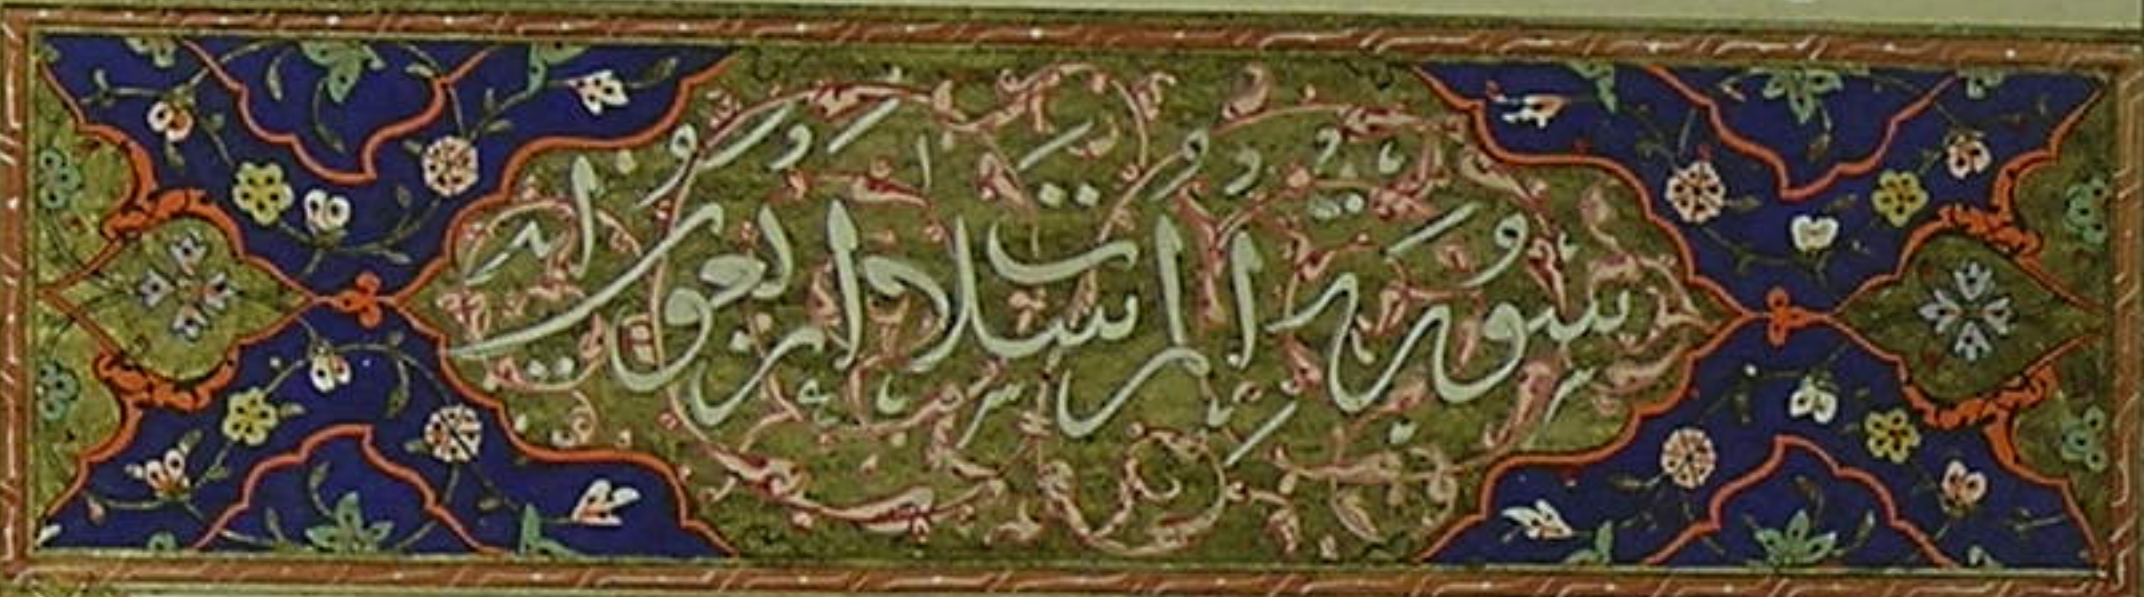 سُورَةُ المُرسَلات اربعونَ اية